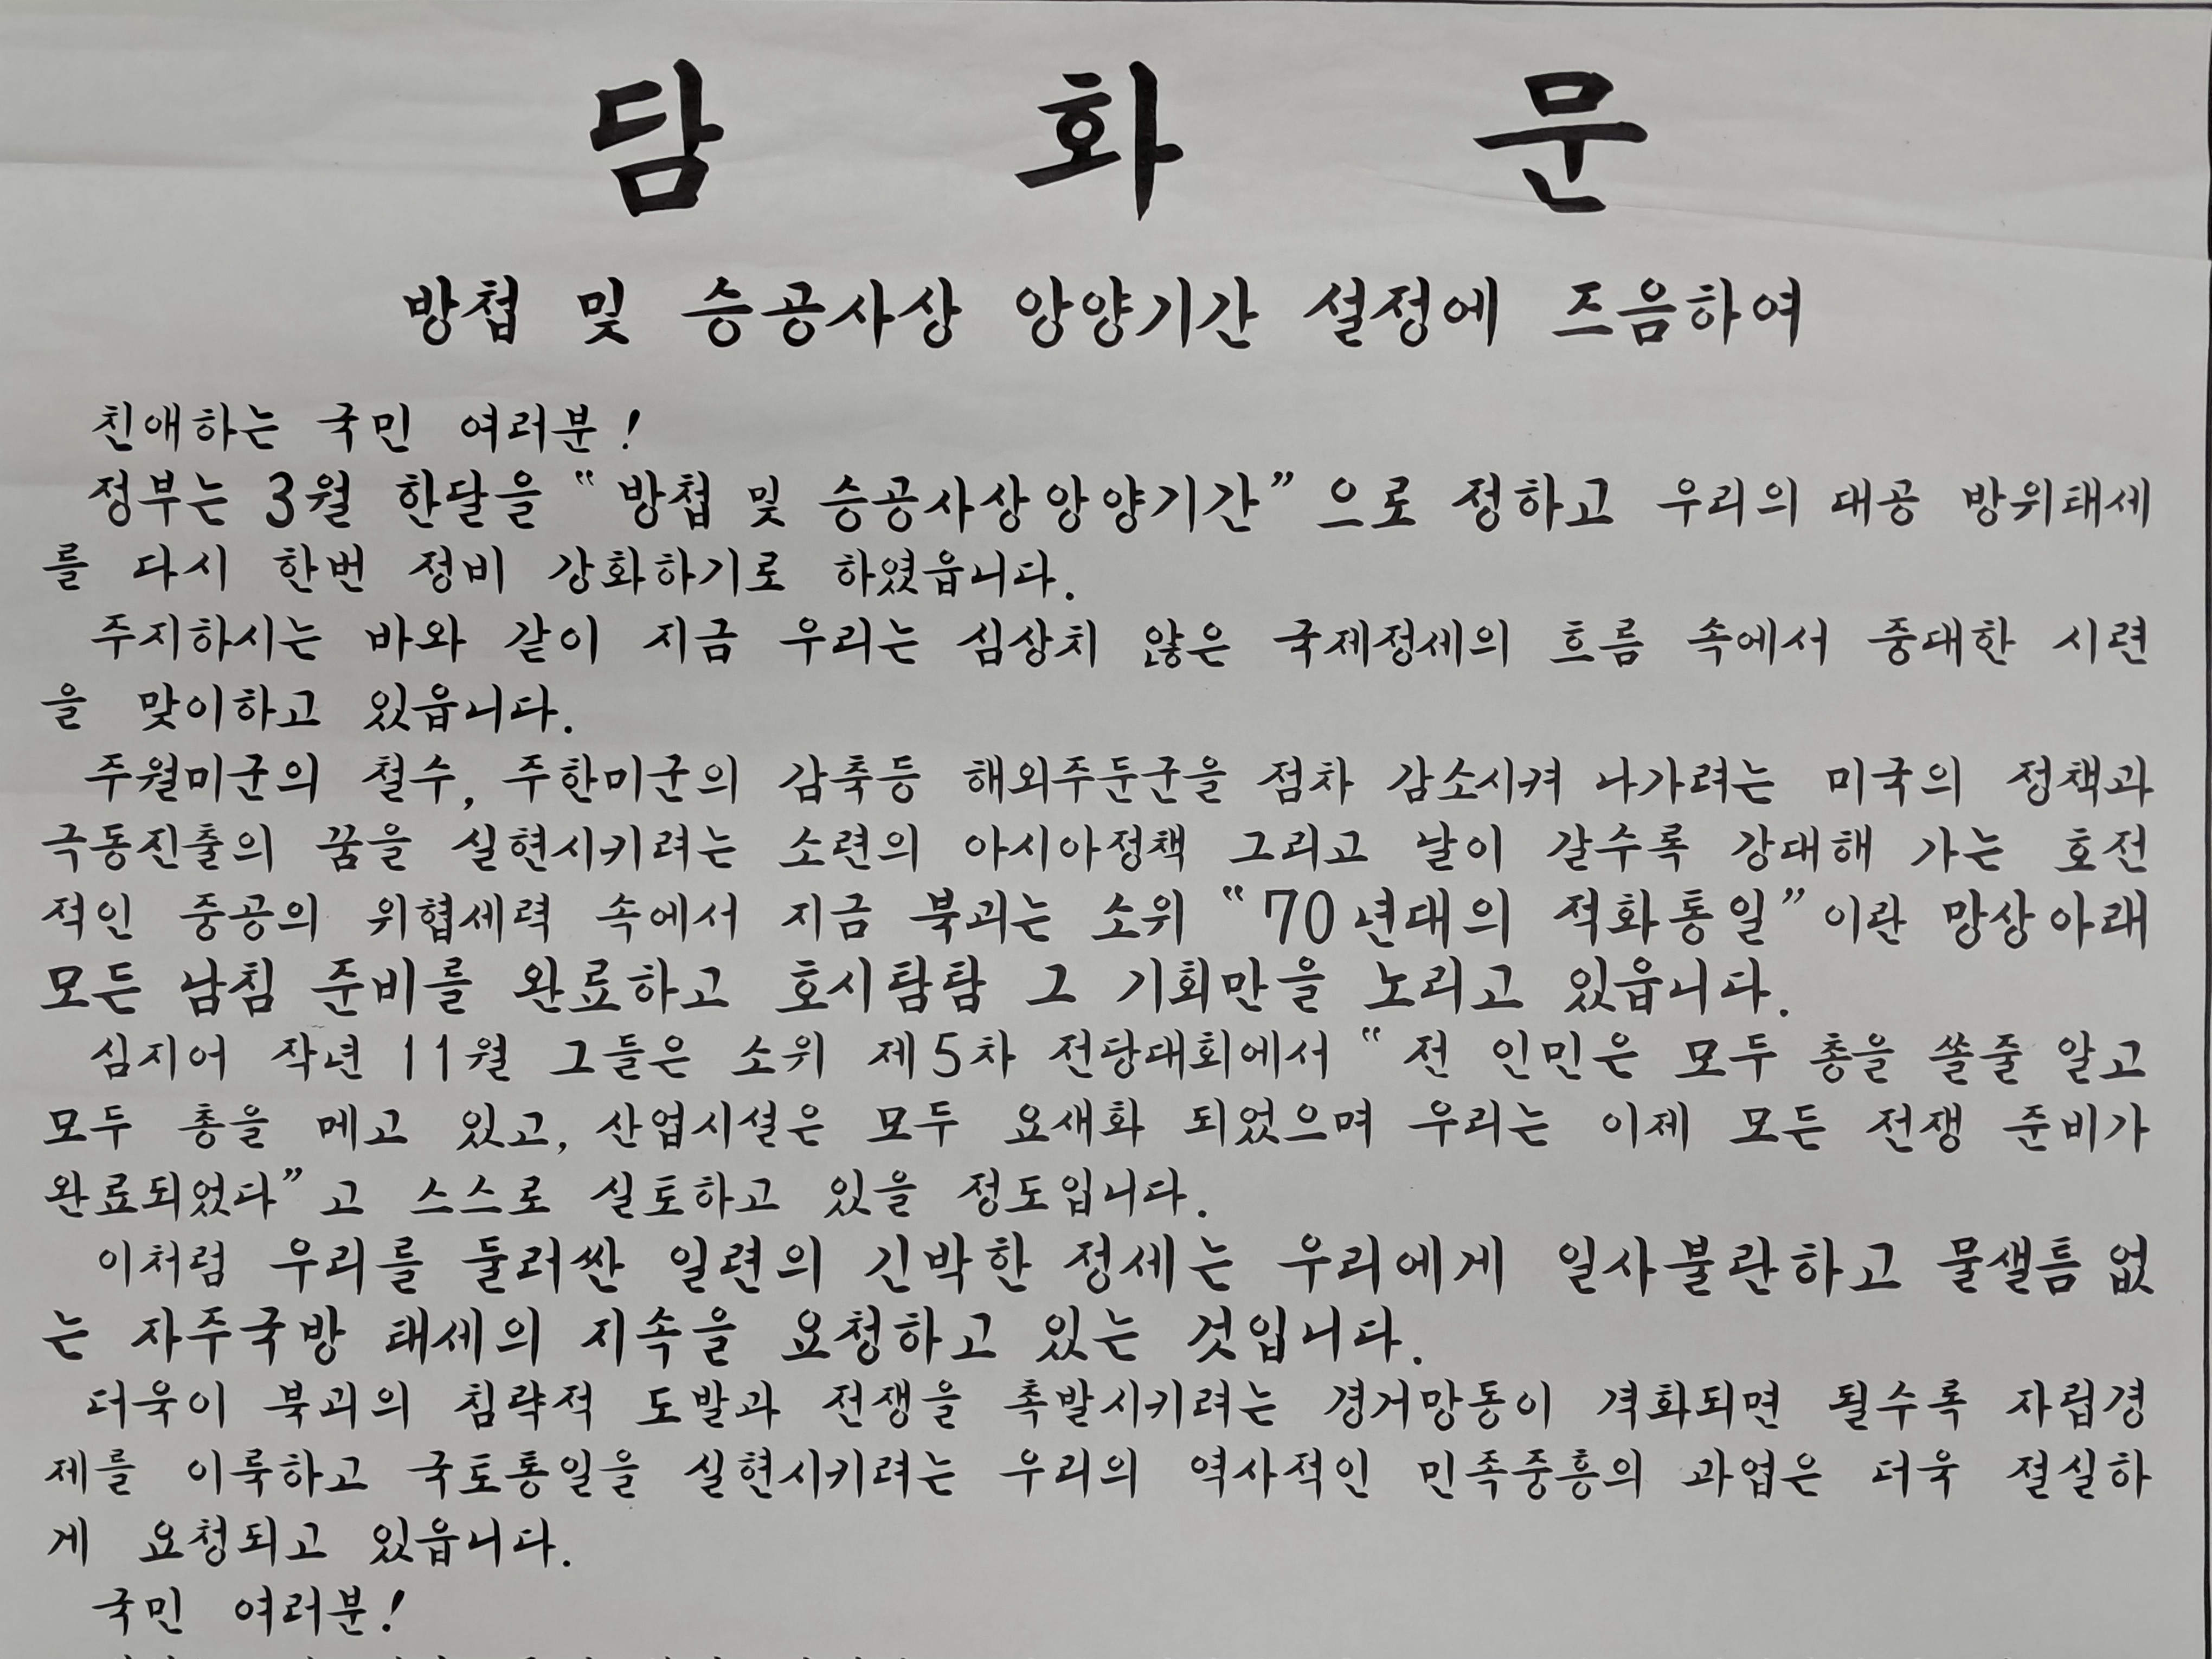 담 화 문
방첩 및 승공사상 앙양기간 설정에 즈음하여
친애하는 국민 여러분!
정부는 3월 한달을 "방첩 및 승공사상앙양기간"으로 정하고 우리의 대공 방위태세
를 다시 한번 정비 강화하기로 하였읍니다.
주지하시는 바와 같이 지금 우리는 심상치 않은 국제정세의 흐름 속에서 중대한 시련
을 맞이하고 있읍니다.
주월미군의 철수, 주한미군의 감축등 해외주둔군을 점차 감소시켜 나가려는 미국의 정책과
극동진출의 꿈을 실현시키려는 소련의 아시아정책 그리고 날이 갈수록 강대해 가는 호전
적인 중공의 위협세력 속에서 지금 북괴는 소위 "70년대의 적화통일"이란 망상아래
모든 남침 준비를 완료하고 호시탐탐 그 기회만을 노리고 있읍니다.
심지어 작년 11월 그들은 소위 제5차 전당대회에서 "전 인민은 모두 총을 쏠줄 알고
모두 총을 메고 있고, 산업시설은 모두 요새화 되었으며 우리는 이제 모든 전쟁 준비가
완료되었다"고 스스로 실토하고 있을 정도입니다.
이처럼 우리를 둘러싼 일련의 긴박한 정세는 우리에게 일사불란하고 물샐틈 없
는 자주국방 태세의 지속을 요청하고 있는 것입니다.
더욱이 북괴의 침략적 도발과 전쟁을 촉발시키려는 경거망동이 격화되면 될수록 자립경
제를 이룩하고 국토통일을 실현시키려는 우리의 역사적인 민족중흥의 과업은 더욱 절실하
게 요청되고 있읍니다.
국민 여러분!